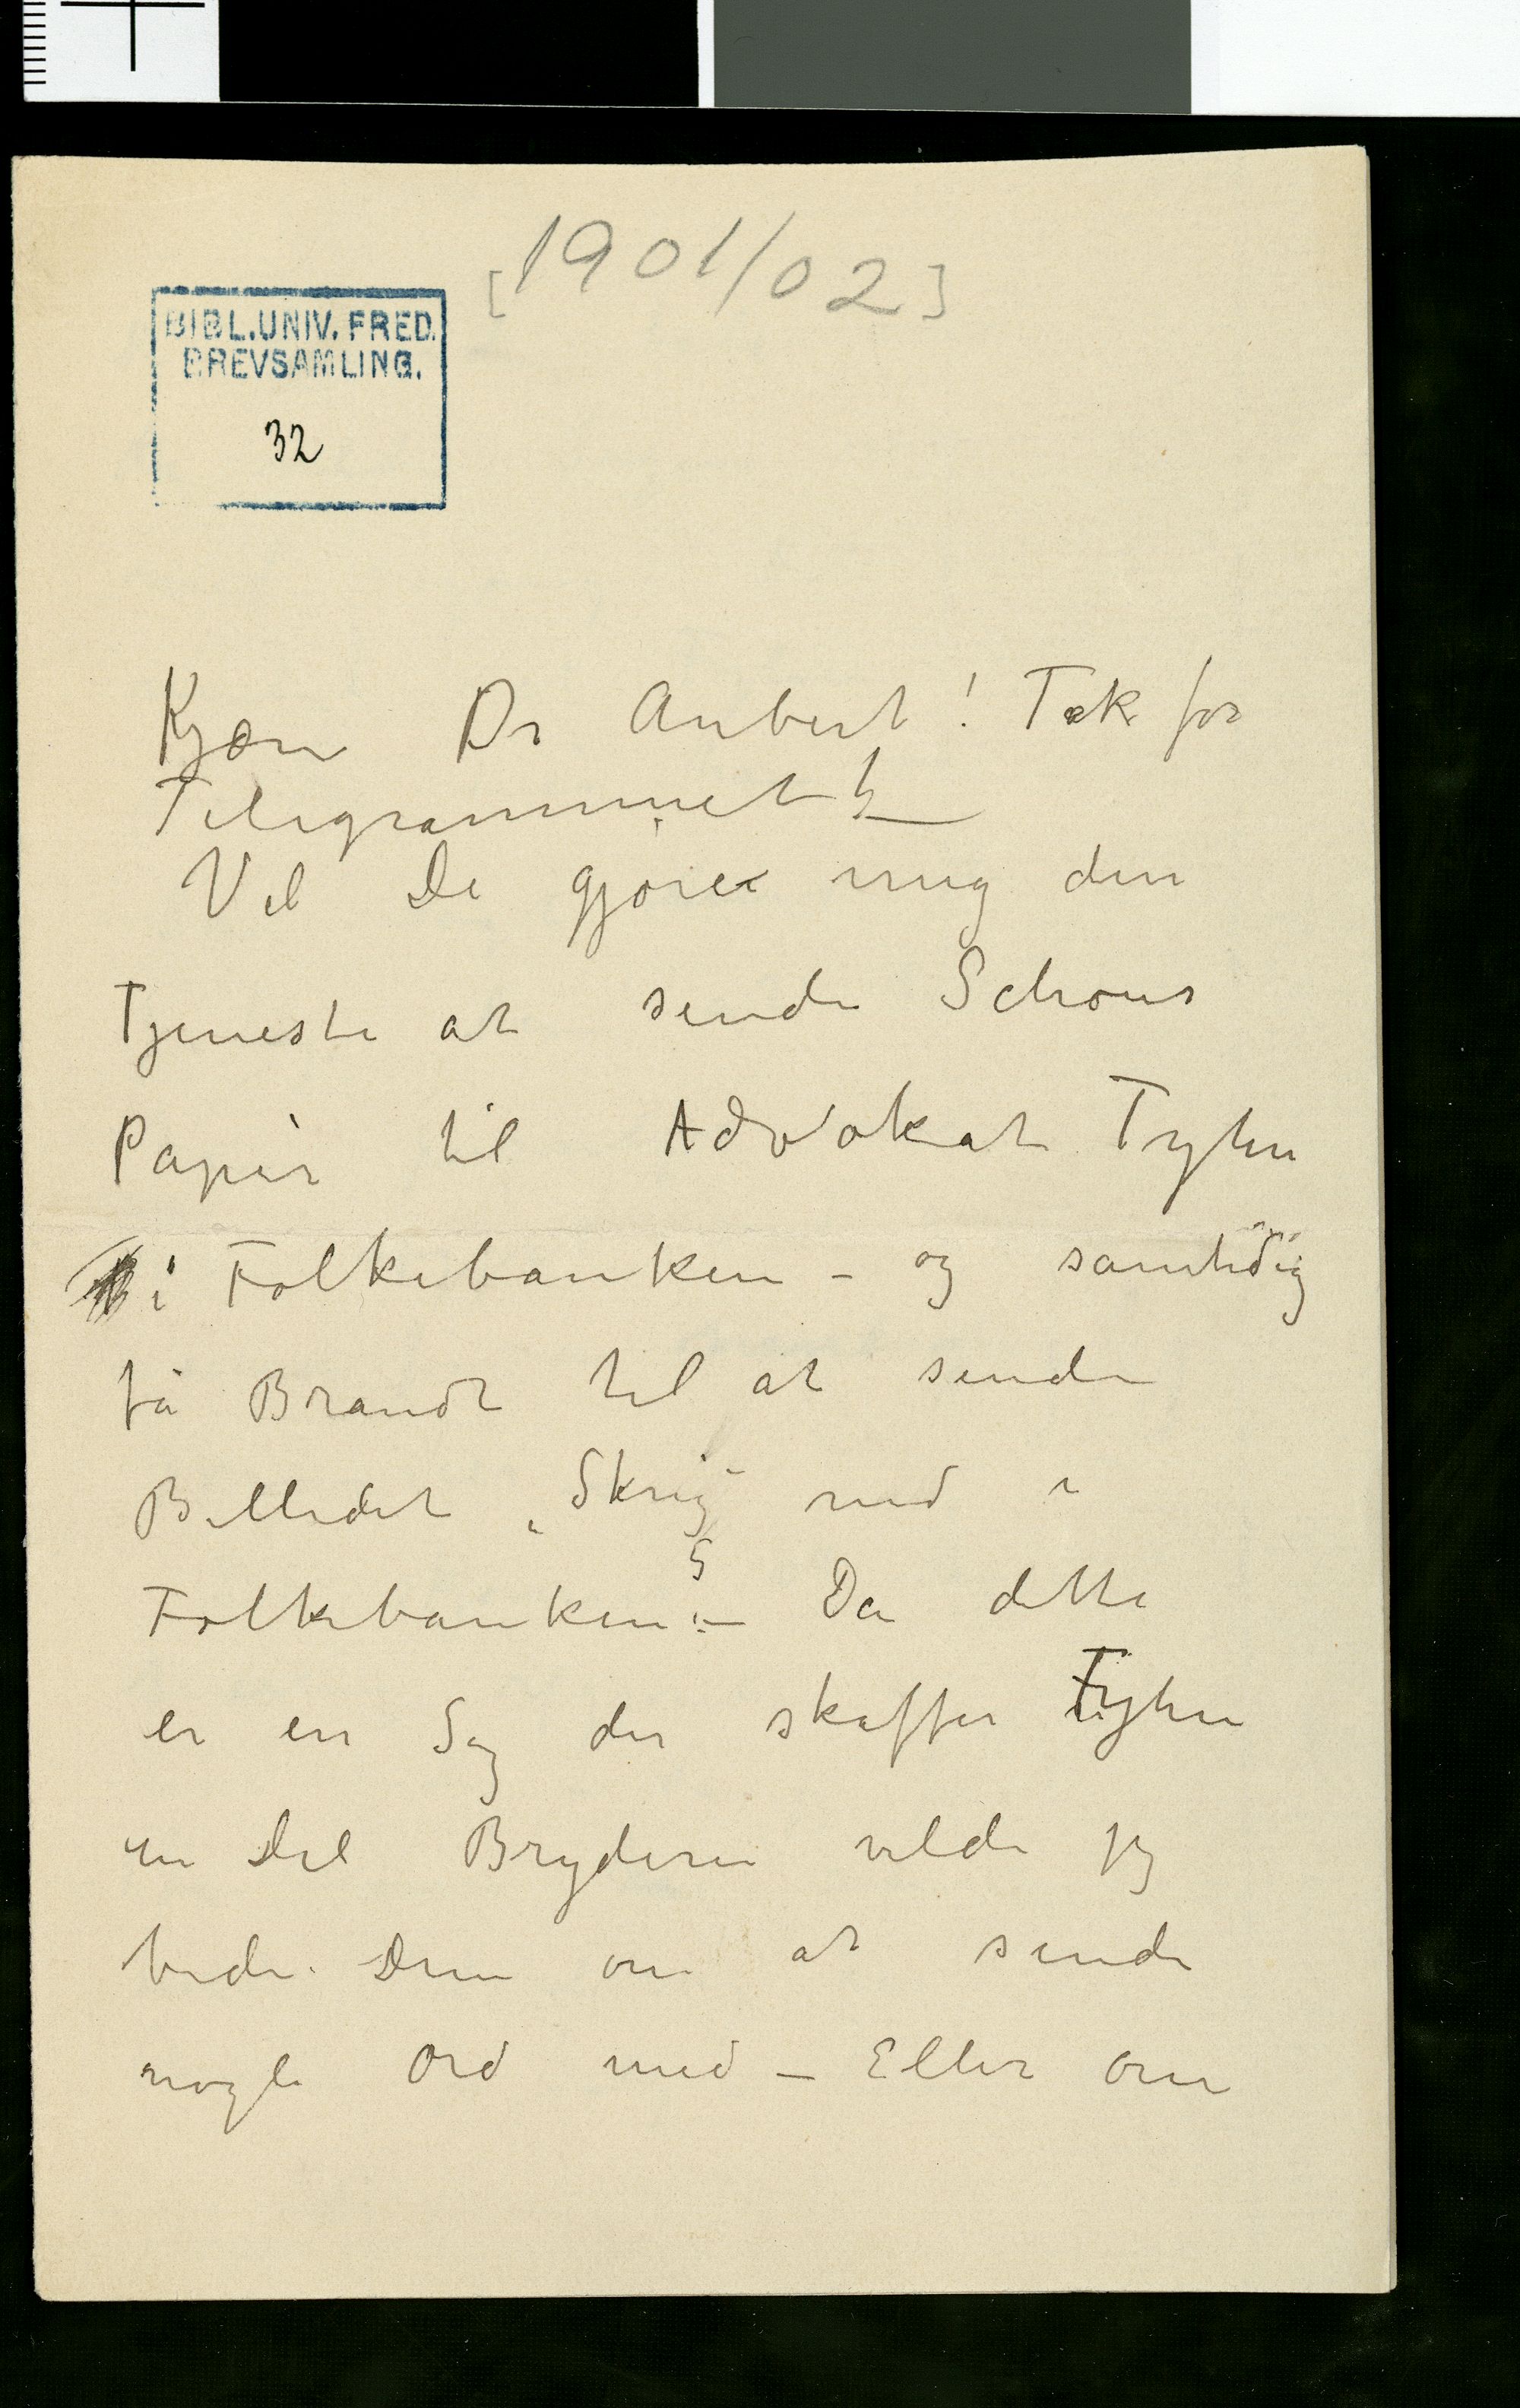 [1901/02]
BIBL.UNIV. FRED.
BREVSAMLING.
32
Kjære Dr Aubert! Tak for
Telegrammet!
Vil De gjøre mig den
Tjeneste at sende Schous
Papir til Advokat Tyhn
i Folkebanken – og samtidig
få Brandt til at sende
Billedet „Skrig" ned i
Folkebanken? – Da dette
er en Sag der skaffer Tyhn
en Del Bryderi vilde jeg
bede Dem om at sende
nogle Ord med – Eller om